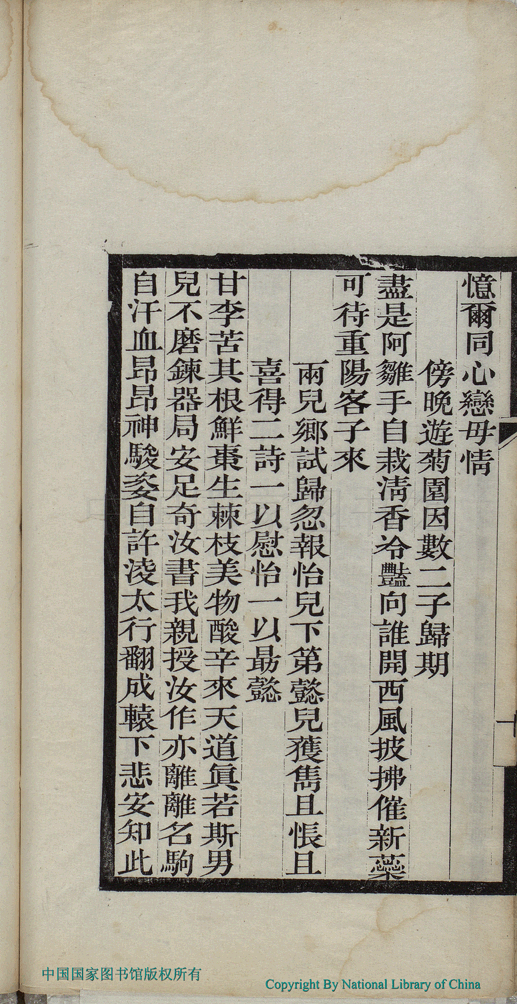 憶爾同心戀母情
傍晚遊菊圃因數二子歸期
盡是阿雛手自栽清香冷豔向誰開西風披拂催新蘂
可待重陽客子來
兩兒鄉試歸忽報怡兒下第懿兒獲雋且悵且
喜得二詩一以慰怡一以勗懿
甘李苦其根鮮棗生棘枝美物酸辛來天道眞若斯男
兒不磨鍊器局安足奇汝書我親授汝作亦離離名駒
自汗血昂昂神駿姿自許淩太行翻成轅下悲安知此
中国国家图书馆版权所有
Copyright By National Library of China